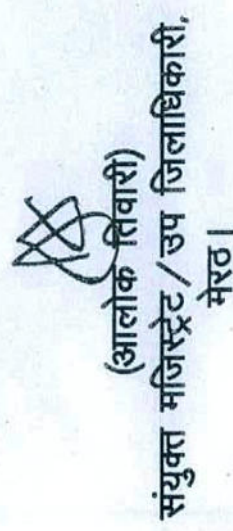 (आलोक तिवारी)
संयुक्त मजिस्ट्रेट / उप जिलाधिकारी,
मेरठ।